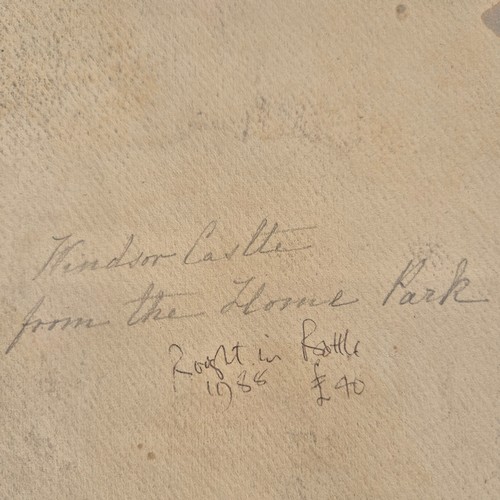 Windsor Castle
from the Home Park
Bought in Battle
1988 £40